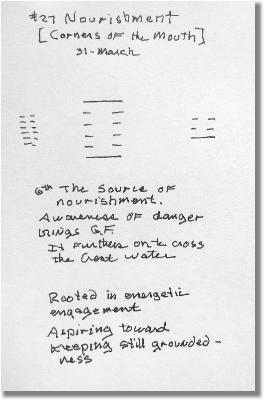 #27 Nourishment
[Corners of the Mouth]
31-March
6th The Source of
nourishment.
Awareness of danger
brings G.F.
It furthers one to cross
the Great Water
Rooted in energetic
engagement
Aspiring toward
Keeping still grounded-
ness